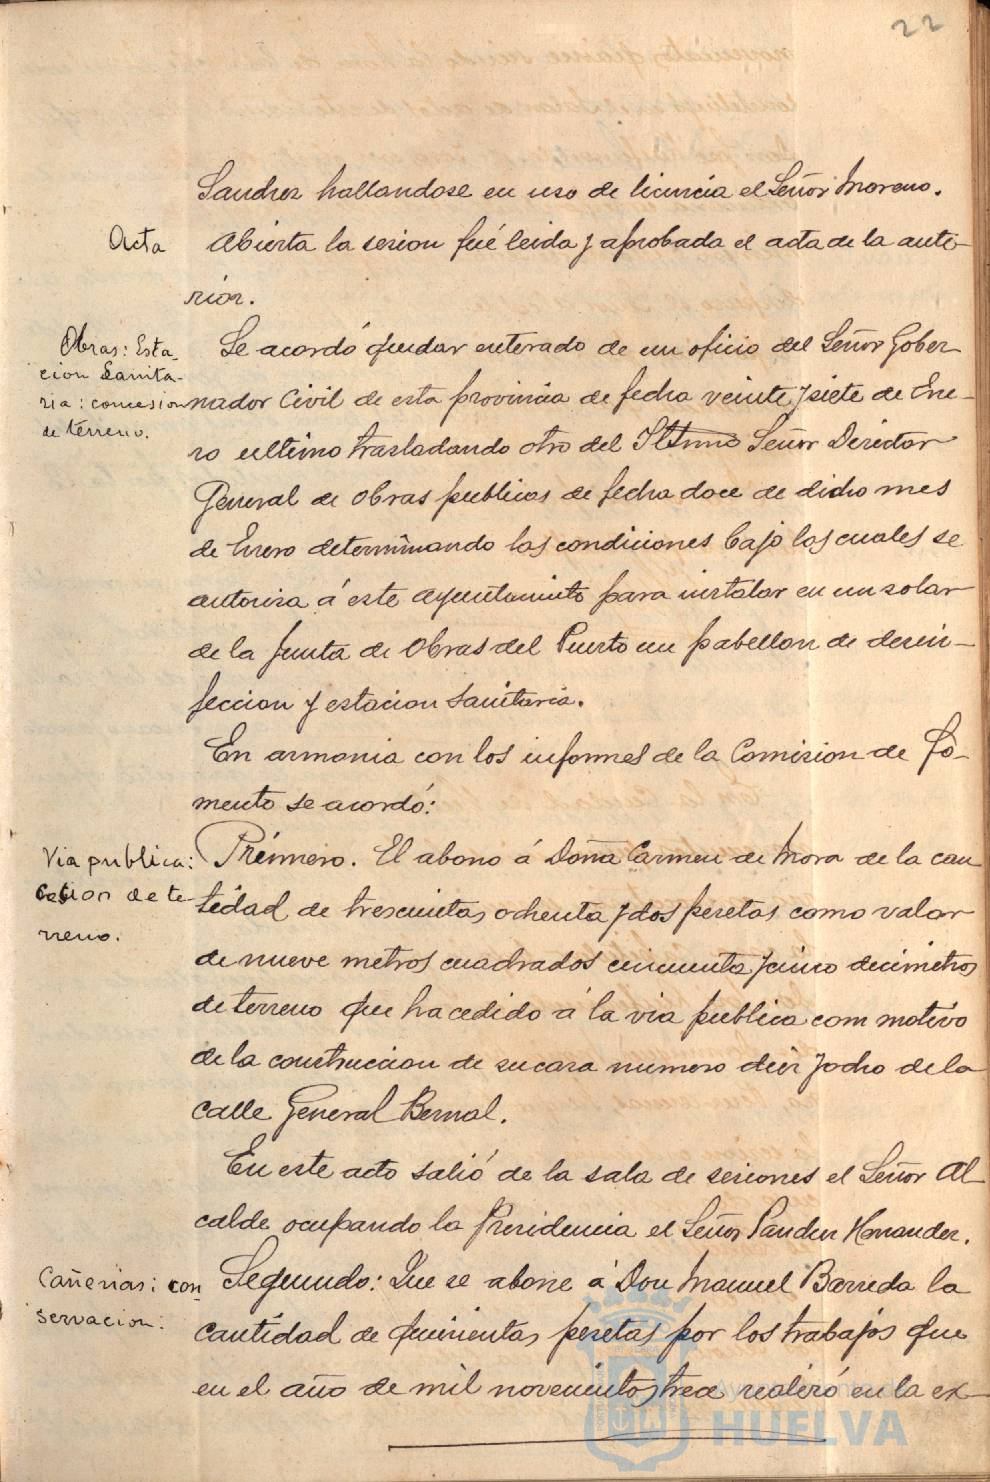 22
Sanchez hallandose en uso de licencia el Señor Moreno.
Acta
Abierta la sesion fué leida y aprobada el acta de la ante-
rior.
Obras: Esta-
cion Sanita-
ria: concesion
de terreno.
Se acordó quedar enterado de un oficio del Señor Gober-
nador Civil de esta provincia de fecha veinte y siete de Ene-
ro ultimo trasladando otro del Iltmo Señor Director
General de Obras publicas de fecha doce de dicho mes
de Enero determinando las condiciones bajo las cuales se
autoriza á este Ayuntamiento para instalar en un solar
de la Junta de Obras del Puerto un pabellon de desin-
feccion y estacion Sanitaria.
En armonia con los informes de la Comision de Fo-
mento se acordó:
Via publica:
Cesion de te-
rreno.
Primero. El abono á Doña Carmen de Mora de la can
tidad de trescientas ochenta y dos pesetas como valor
de nueve metros cuadrados cincuenta y cinco decimetros
de terreno que ha cedido á la via publica com motivo
de la construccion de su casa numero diez y ocho de la
calle General Bernal.
En este acto salió de la sala de sesiones el Señor Al-
calde ocupando la Presidencia el Señor Sanchez Hernandez.
Cañerias: con
servacion:
Segundo: Que se abone á Don Manuel Barreda la
cantidad de quinientas pesetas por los trabajos que
en el año de mil novecientos trece realizó en la ex-
Ayuntamiento de
HUELVA